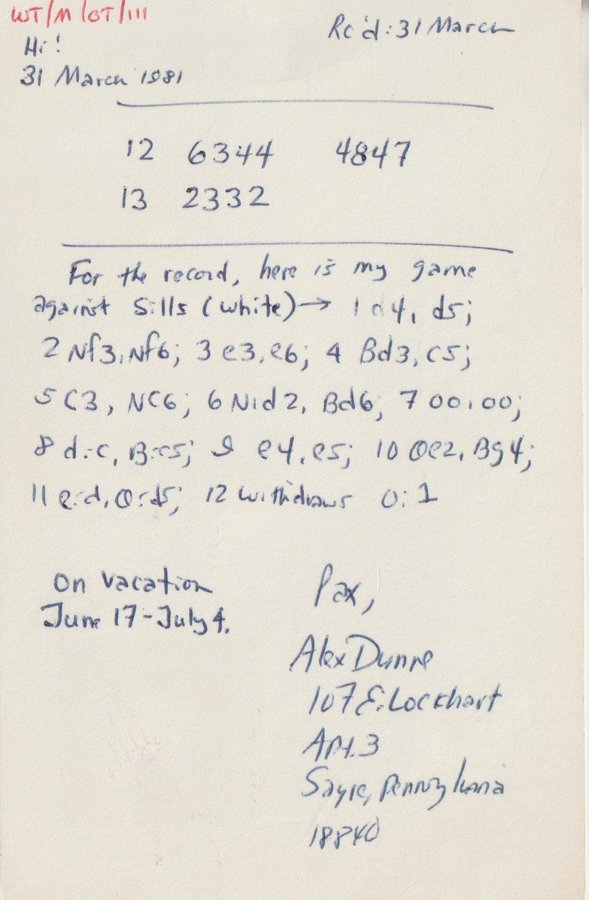 WT/M/GT/111
Rc'd: 31 March
Hi!
31 March 1981
12 6344 4847
13 2332
For the record, here is my game
against Sills (white) → 1 d4, d5;
2 Nf3, Nf6; 3 e3, e6; 4 Bd3, c5;
5 C3, NC6; 6 N1d2, Bd6; 7 00, 00;
8 d:c, B:c5; 9 e4, e5; 10 Qe2, Bg4;
11 e:d, Q:d5; 12 withdraws 0:1
On vacation
June 17-July 4.
Pax,
Alex Dunne
107 E. Lockhart
Apt. 3
Sayre, Pennsylvania
18840